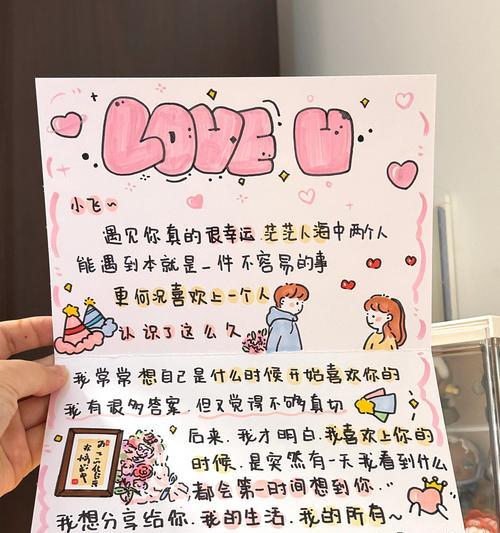 LOVE U
小飞~
遇见你真的很幸运.茫茫人海中两个人
能遇到本就是一件不容易的事
更何况喜欢上一个人
认识了这么久
我常常想自己是什么时候开始喜欢你的
我有很多答案.但又觉得不够真切
后来.我才明白.我喜欢上你的
时候.是突然有一天我看到什么
都会第一时间想到你..
我想分享给你.我的生活.我的所有~